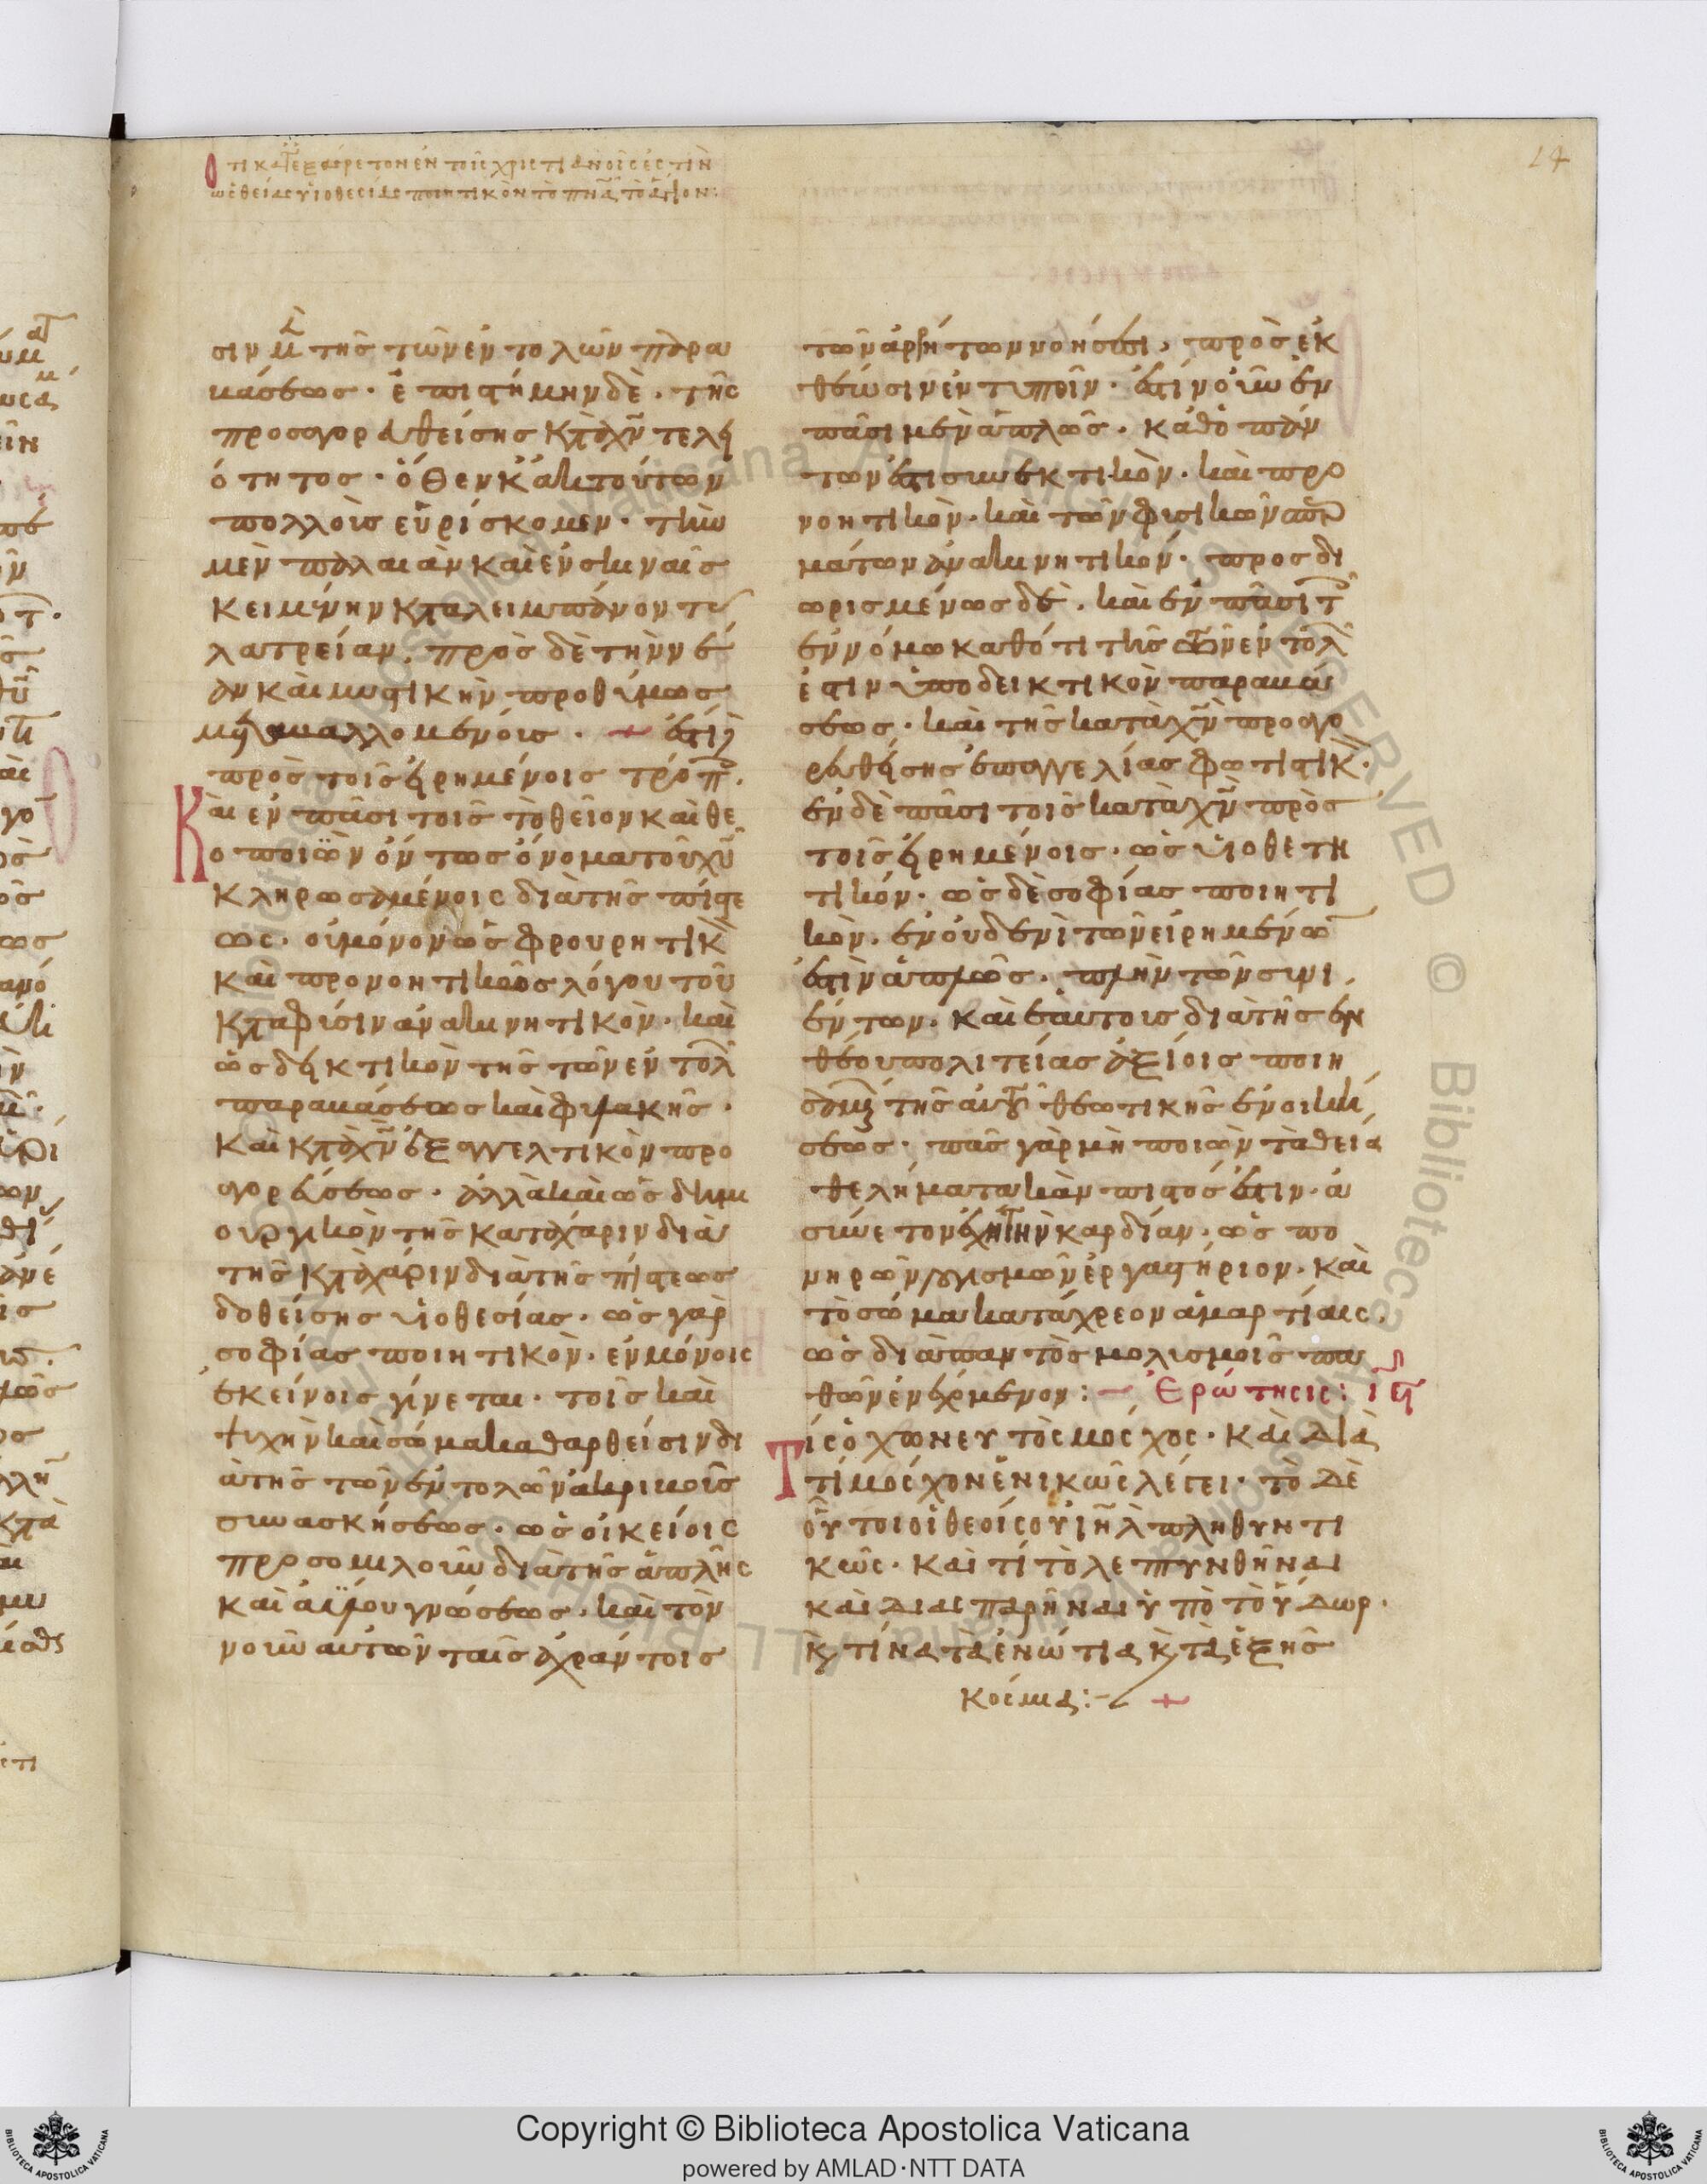 24
ὅτι κατεξαίρετον ἐν τοῖς χριστιανοῖς ἐστὶν
ὡς θείας υἱοθεσίας ποιητικὸν τὸ πνᾶ τὸ ἅγιον:
σιν μὲ τῆς τῶν ἐντολῶν παρα
βάσεως. ἐπιστήμην δὲ. τῆς
προαγορευθείσης κατὰ χν τελει
ότητος. ὅθεν κἀκ τούτων
πολλοὺς εὑρίσκομεν. τὴν
μὲν παλαιὰν καὶ ἐν σκιαῖς
κειμένην καταλειμπάνοντας
λατρείαν. πρὸς δὲ τὴν νέ
αν καὶ μυστικὴν προθύμως
μεταβαλλομένους. + ἔστι δὲ
πρὸς τοῖς εἰρημένοις τρόποις.
Καὶ ἐν πᾶσι τοῖς τὸ θεῖον καὶ θε
οποιὸν ὄντως ὄνομα τοῦ χυ
κληρωσαμένοις διὰ τῆς πίστε
ως. οὐ μόνον ὡς φρουρητικὸν
καὶ προνοητικῶς λόγου τοῦ
κατὰ φύσιν ἀνακινητικὸν. καὶ
ὡς δεικτικὸν τῆς τῶν ἐντολῶν
παραβάσεως καὶ φυλακῆς.
καὶ κατὰ χν ἐξαγγελτικὸν προ
αγορεύσεως. ἀλλὰ καὶ ὡς δημι
ουργικὸν τῆς κατὰ χάριν διὰ
τῆς κατὰ χάριν διὰ τῆς πίστεως
δοθείσης υἱοθεσίας. ὡς γὰρ
σοφίας ποιητικὸν. ἐν μόνοις
ἐκείνοις γίνεται. τοῖς καὶ
ψυχὴν καὶ σῶμα καθαρθεῖσιν δι
ὰ τῆς τῶν ἐντολῶν ἀκριβοῦς
συνασκήσεως. ὡς οἰκείοις
προσομιλοῦν διὰ τῆς ἁπλῆς
καὶ ἀΰλου γνώσεως. καὶ τὸν
νοῦν αὐτῶν ταῖς ἀχράντοις
τῶν ἀρρήτων νοήσεσι, πρὸς ἐκ
θέωσιν ἐντυποῦν. ἔστιν οὖν ἐν
πᾶσι μὲν ἁπλῶς. καθὸ πάν
των ἐστὶ συνεκτικὸν. καὶ προ
νοητικὸν. καὶ τῶν φυσικῶν σπερ
μάτων ἀνακινητικὸν. προσδι
ωρισμένως δὲ. καὶ ἐν πᾶσι τοῖς
ἐν νόμω καθότι τῆς τῶν ἐντολῶν
ἐστιν ὑποδεικτικὸν παραβά
σεως. καὶ τῆς κατὰ χν προαγο
ρευθείσης ἐπαγγελίας φωτιστικὸν.
ἐν δὲ πᾶσι τοῖς κατὰ χν πρὸς
τοῖς εἰρημένοις. ὡς υἱοθετη
τικόν. ὡς δὲ σοφίας ποιητι
κὸν. ἐν οὐδενὶ τῶν εἰρημένων
ἐστὶν ἁπλῶς. πλὴν τῶν συνι
έντων. καὶ ἑαυτοὺς διὰ τῆς ἐν
θέου πολιτείας ἀξίους ποιη
σαμένων τῆς αὐτοῦ θεωτικῆς ἐνοική
σεως. πᾶς γὰρ μὴ ποιῶν τὰ θεῖα
θελήματα κἂν πιστός ἐστιν. ἀ
σύνετον ἔχει τὴν καρδίαν. ὡς πο
νηρῶν λογισμῶν ἐργαστήριον. καὶ
τὸ σῶμα κατάχρεον ἁμαρτίαις.
ὡς διὰ παντὸς μολυσμοῖς πα
θῶν ἐνεχόμενον: Ἐρώτησις: ιϛ
Τίς ὁ χωνευτὸς μόσχος. καὶ διὰ
τί μόσχον ἑνικῶς λέγει. τὸ δὲ
οὗτοι οἱ θεοί σου ιηλ πληθυντι
κῶς. καὶ τί τὸ λεπτυνθῆναι
καὶ διασπαρῆναι ὑπὸ τὸ ὕδωρ.
καὶ τίνα τὰ ἐνώτια καὶ τὰ ἑξῆς
κόσμια: +
Copyright © Biblioteca Apostolica Vaticana
powered by AMLAD·NTT DATA